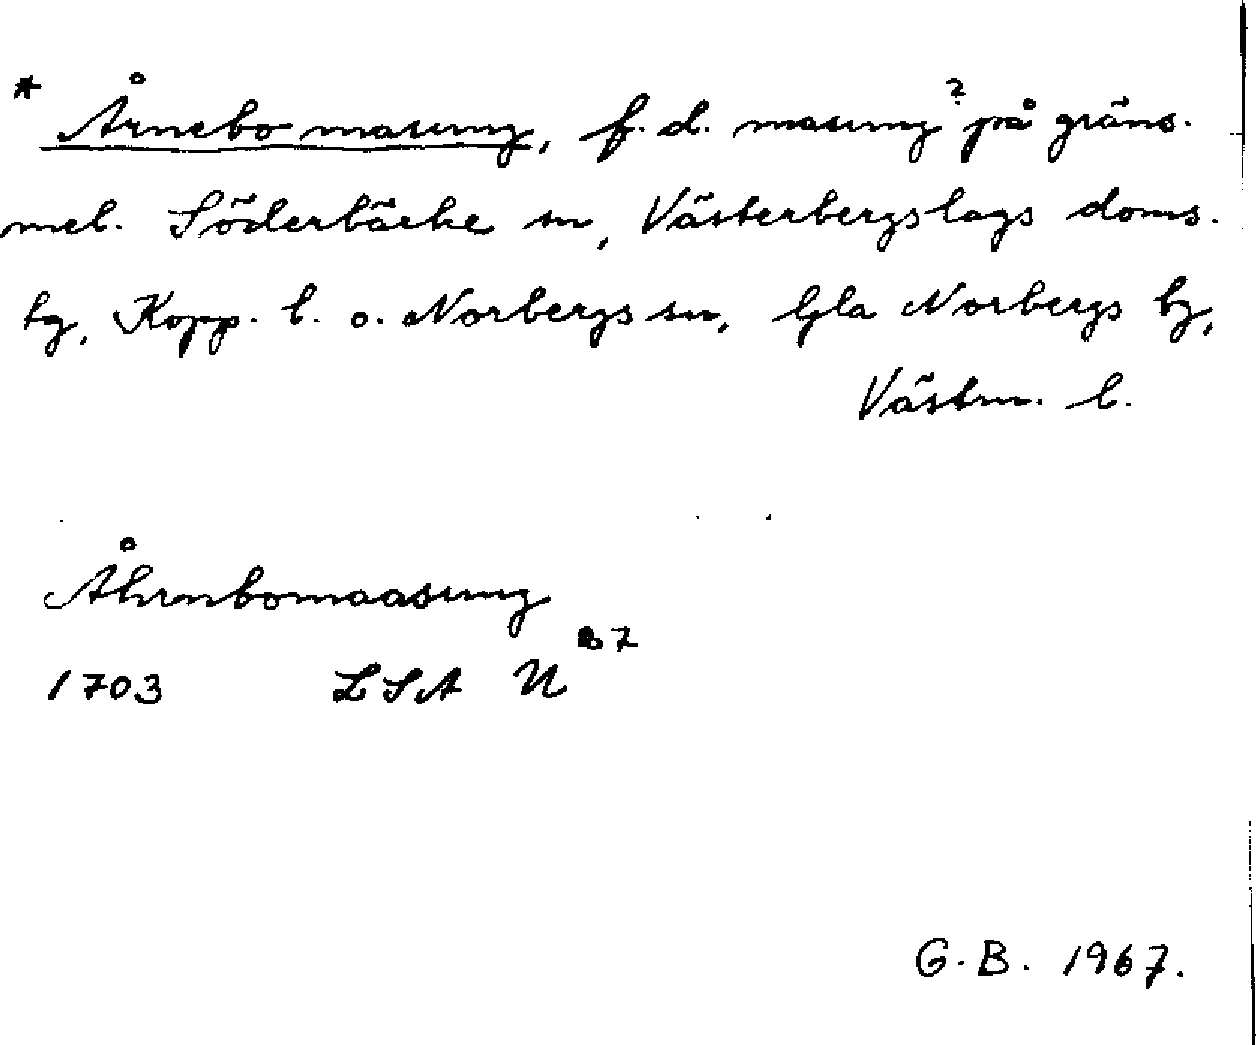 * Årnebo masung, f.d. masung? på gräns.
mel. Söderbärke sn, Västerbergslags doms.
hg, Kopp. l. o. Norbergs sn, Gla Norbergs bg,
Västm. l.
Åhrnbomaasung
1703 LSA U 87
G.B. 1967.